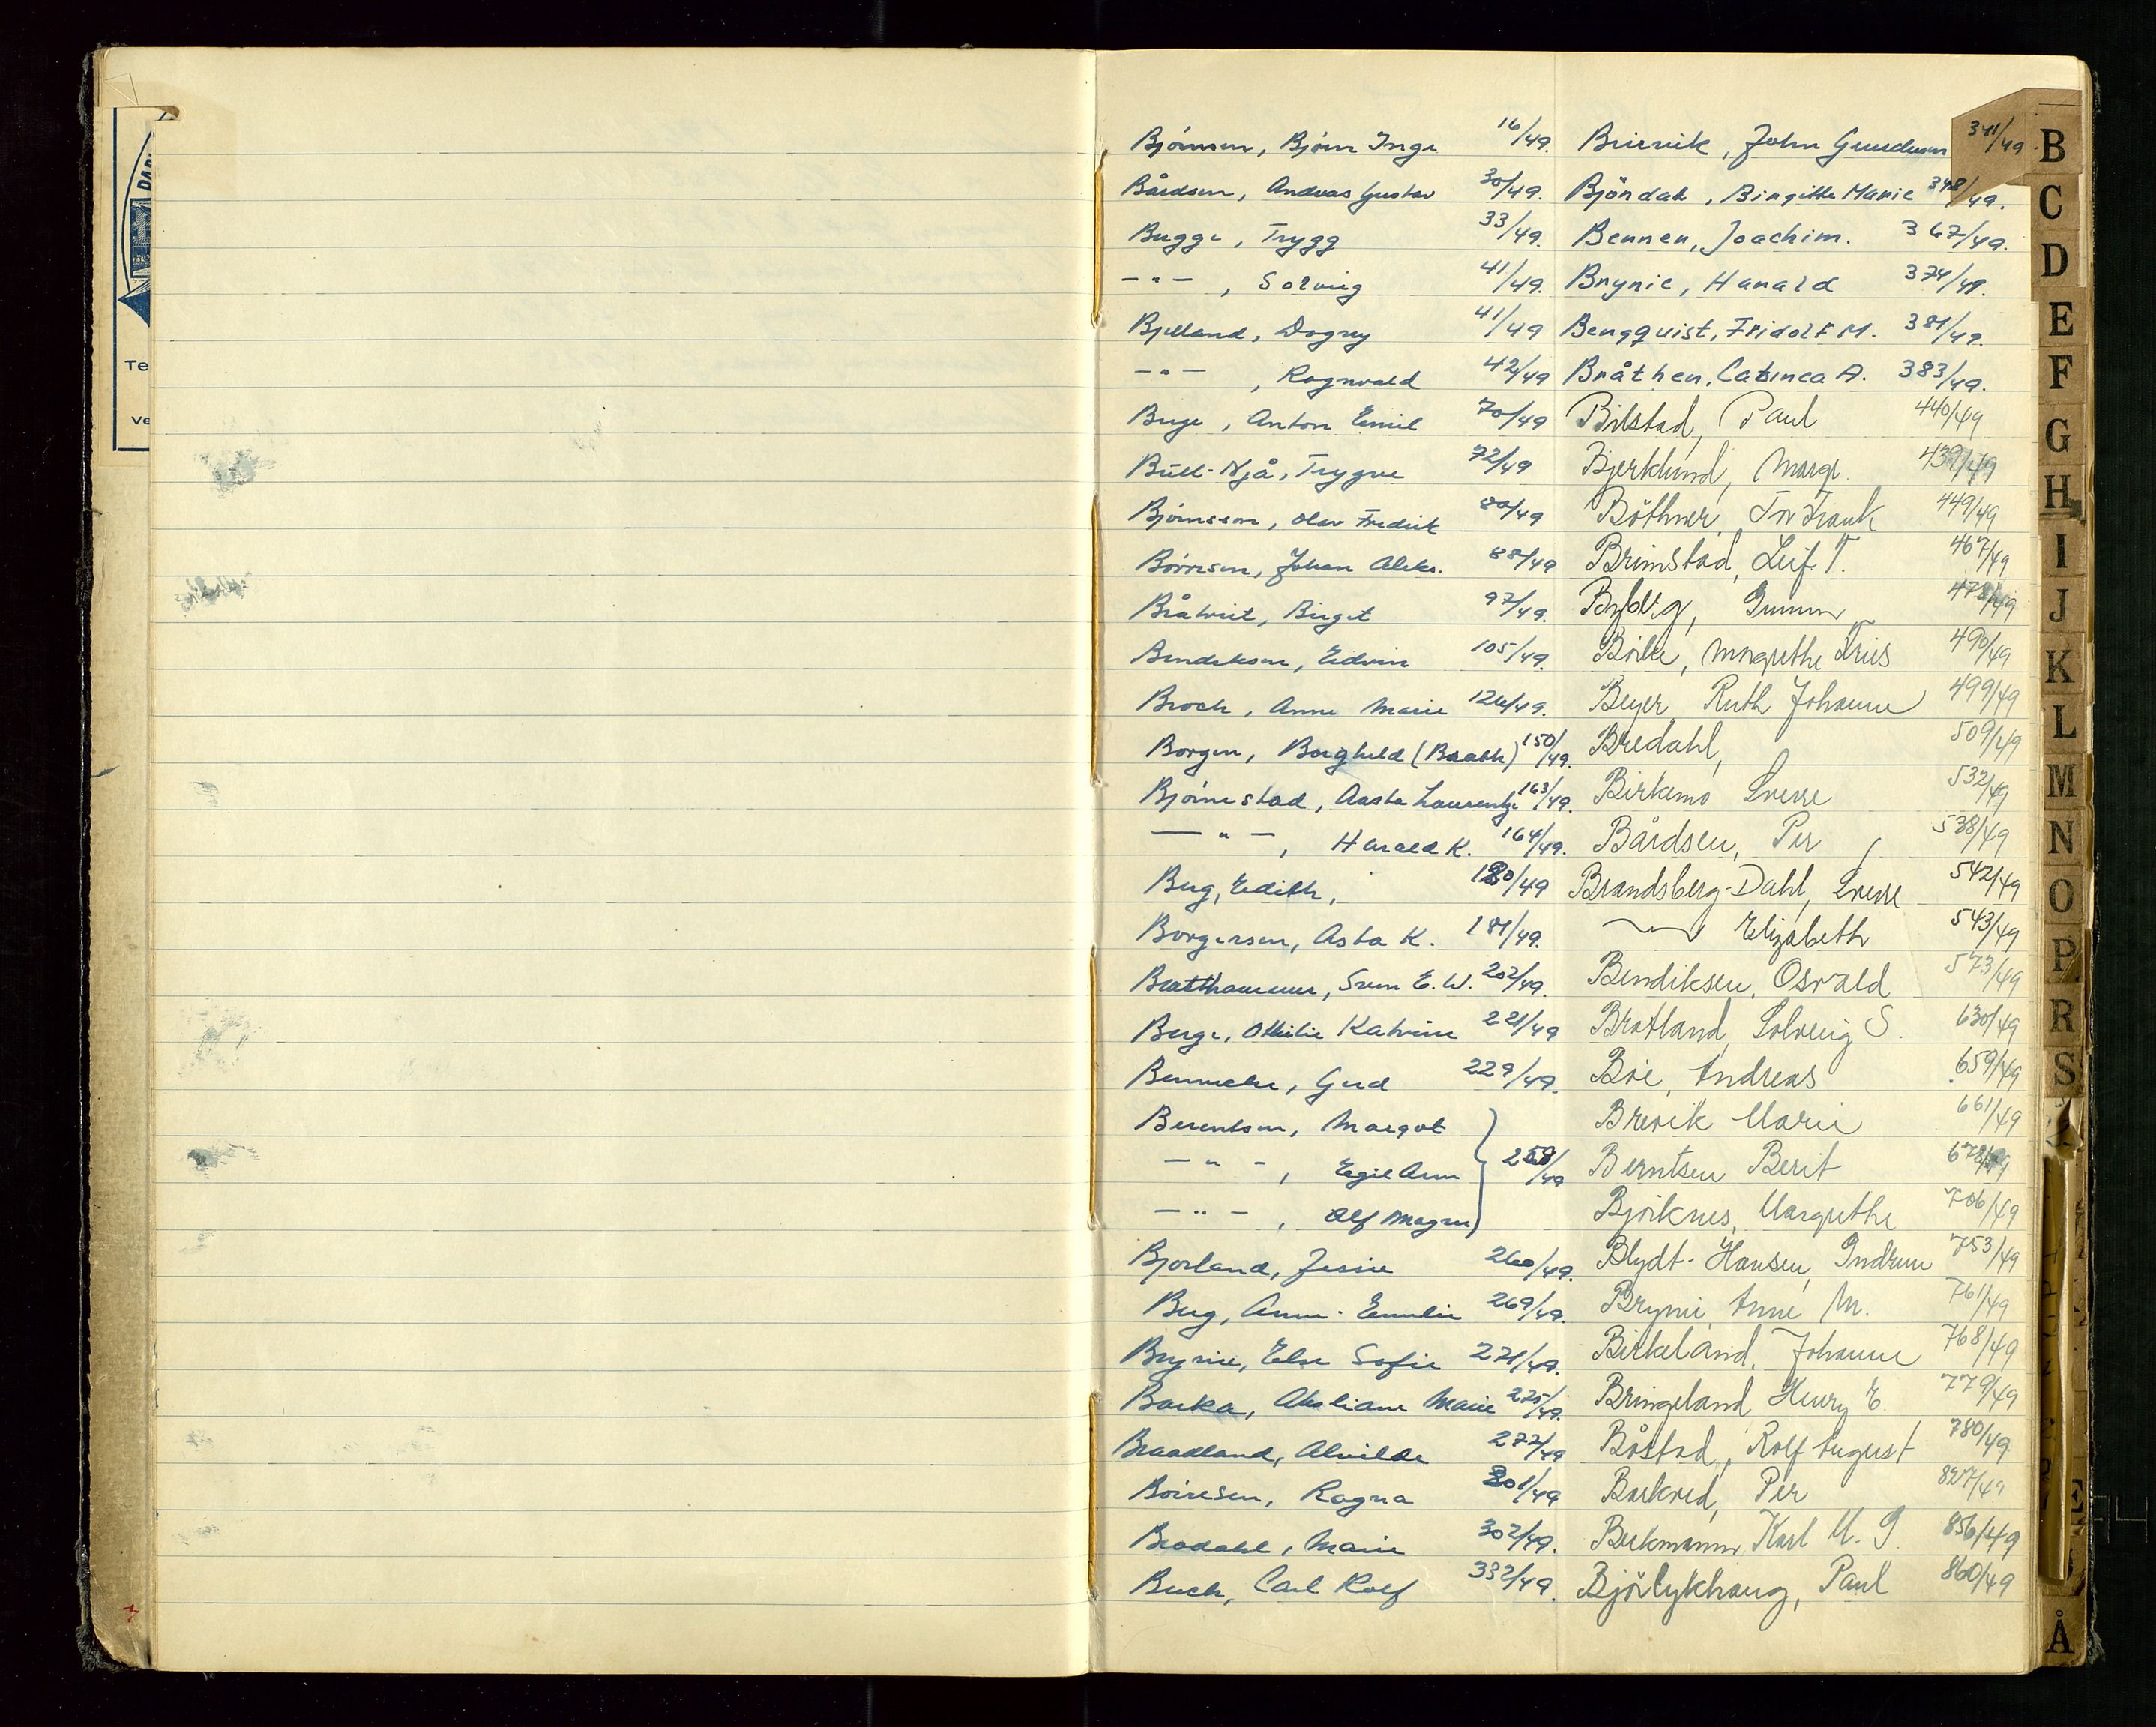 Bjørnsen, Bjørn Inge 16/49.
Bårdsen, Andreas Gustav 30/49.
Bugge, Trygg 33/49.
-"- , Solveig 41/49.
Bjelland, Dagny 41/49
-"- , Ragnvald 42/49
Buge, Anton Emil 70/49
Bull-Njå, Trygve 72/49
Bjørnsson, Olav Fredrik 80/49
Børresen, Johan Aleks. 88/49
Birgit 97/49.
Bendiksen, Edvin 105/49.
Broch, Anne Marie 126/49.
Borgen, Borghild (Braath) 150/49.
Bjørnestad, Aasta Laurentze 163/49.
-"- , Harald K. 164/49.
Berg, Edith, 180/49
Borgersen, Asta K. 181/49.
Bratthammer, Sven E. W. 202/49.
Berge, Othilie Katrine 221/49
Benneche, Gerd 229/49.
Berentsen, Margot
-"- , Egil Arm 259/49
-"- , Alf Magne
Bjorland, Jessie 260/49.
Berg, Anne-Emelie 269/49.
Brynie, Else Sofie 271/49.
Barka, Marie 275/49.
Braadland, Alvilde 277/49
Børresen, Ragna 301/49
Brodahl, Marie 302/49.
Buch, Carl Rolf 332/49.
Brievik, John Gundersen 341/49.
Bjöndal, Birgitte Marie 348/49.
Bennen, Joachim. 367/49.
Brynie, Harald 374/49.
Bengquist, Fridolf M. 381/49.
Bråthen, Catinca A. 383/49.
Bilstad, Paul 440/49
Bjerklund, Margr. 439/49
Böthner, Frank 449/49
Brimstad, Leif T. 467/49
Gunnar 478/49
Margrethe Friis 490/49
Beyer Ruth Johanne 499/49
Bredahl, 509/49
Birkemo Sverre 532/49
Bårdsen, Per 538/49
Brandsberg-Dahl, Sverre 542/49
Elizabeth 543/49
Bendiksen, Osvald 573/49
Bratland, Solveig S. 630/49
Böe, Andreas 659/49
Brevik Marie 661/49
Berntsen Berit 678/49
Bjørknes, Margrethe 706/49
Blydt-Hansen, Gudrun 753/49
Brynie, Anne M. 761/49
Birkeland, Johanne 768/49
Bringeland Henry E. 779/49
Båstad, Rolf August 780/49
Barkved, Per 827/49
Berkmann, Karl M. G. 856/49
Bjørlykhaug, Paul 860/49
B
C
D
E
F
G
H
I
J
K
L
M
N
O
P
R
S
Å
Te
Ve